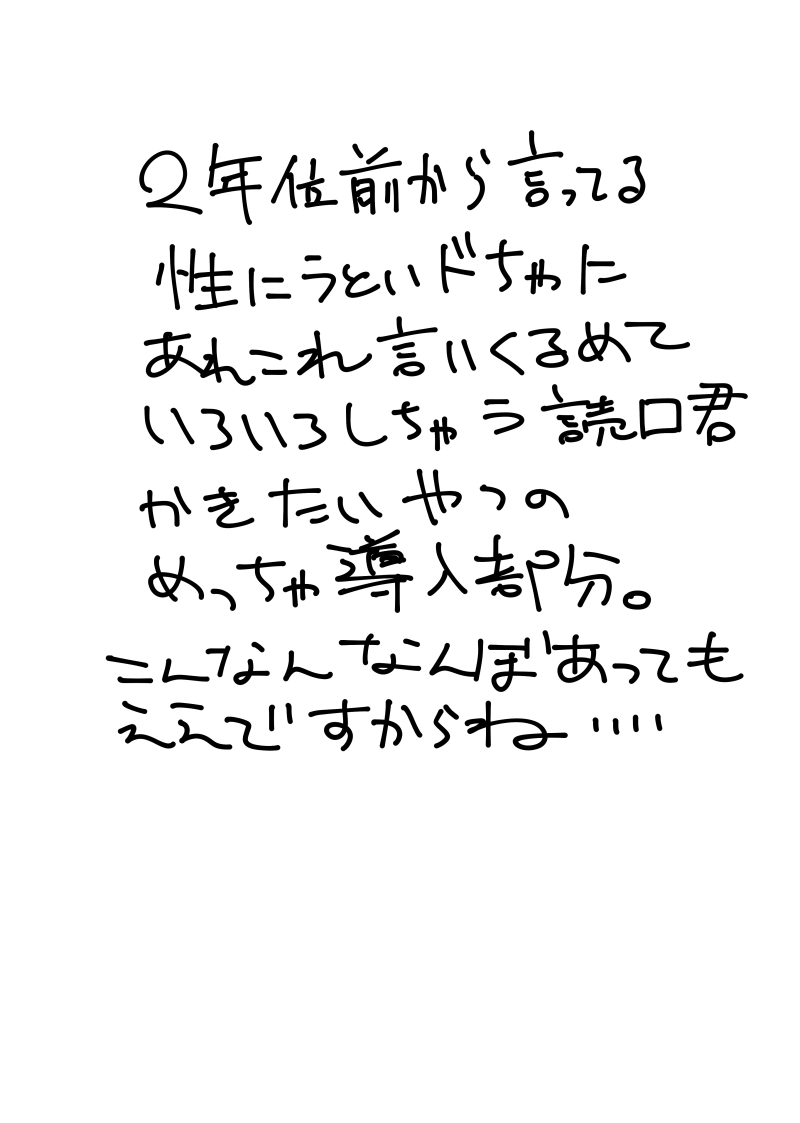 2年位前から言ってる
性にうといドちゃに
あれこれ言いくるめて
いろいろしちゃう読口君
かきたいやつの
めっちゃ導入部分。
こんなんなんぼあっても
ええですからね‥‥